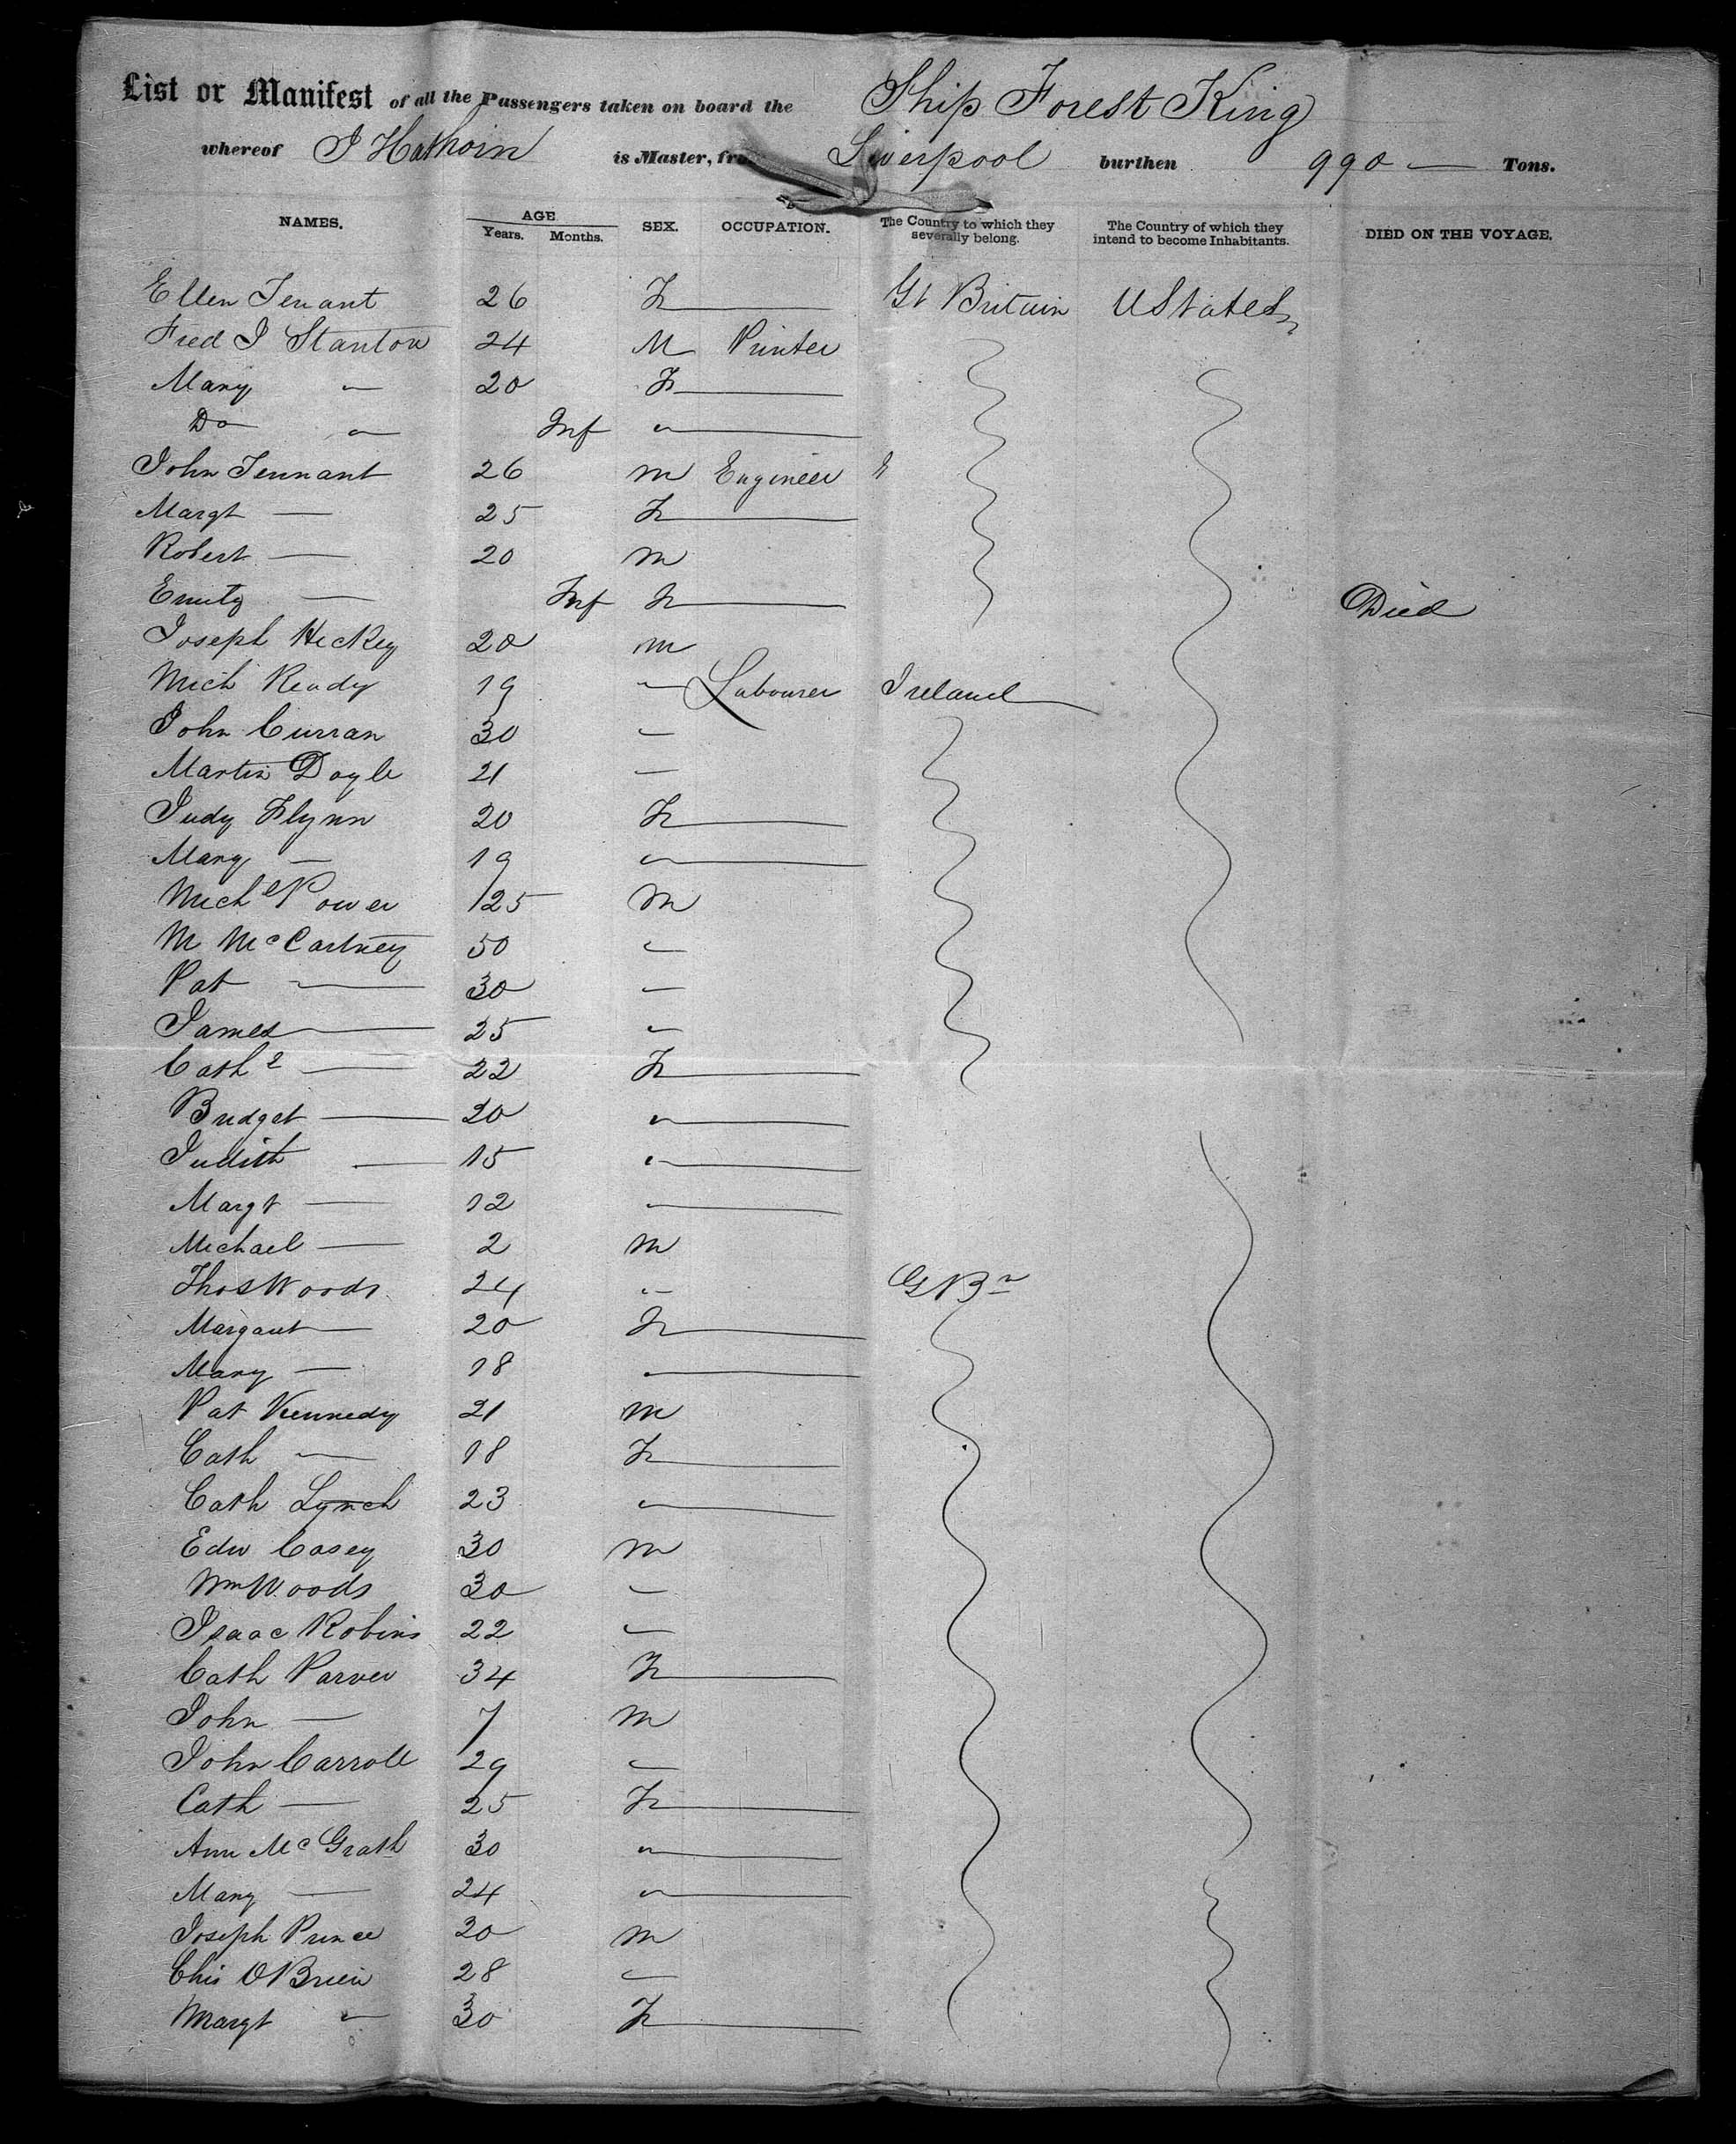 List or Manifest of all the Passengers taken on board the Ship Forest King
whereof J Hathorn is Master, from Liverpool burthen 990 — Tons.
NAMES. AGE Years. Months. SEX. OCCUPATION. The Country to which they severally belong. The Country of which they intend to become Inhabitants. DIED ON THE VOYAGE.
Ellen Tenant 26 F — Gt Britain U States
Fred J Stanton 24 M Printer
Mary " 20 F —
Do " Inf " —
John Tennant 26 M Engineer
Margt — 25 F —
Robert — 20 M
Emily — Inf F — Died
Joseph Hickey 20 M
Mich Ready 19 " Labourer Ireland
John Curran 30 "
Martin Doyle 21 "
Judy Flynn 20 F —
Mary — 19 " —
Michl Power 25 M
M McCartney 50 "
Pat — 30 "
James — 25 "
Cathe — 22 F —
Bridget — 20 " —
Judith — 15 " —
Margt — 12 " —
Michael — 2 M
Thos Woods 24 " G Bn
Margaret — 20 F —
Mary — 18 " —
Pat Kennedy 21 M
Cath — 18 F —
Cath Lynch 23 " —
Edw Casey 30 M
Wm Woods 30 "
Isaac Robins 22 "
Cath Parver 34 F —
John — 7 M
John Carroll 29 "
Cath — 25 F —
Ann McGrath 30 " —
Mary — 24 " —
Joseph Prince 20 M
Chis OBrien 28 "
Margt " 30 F —